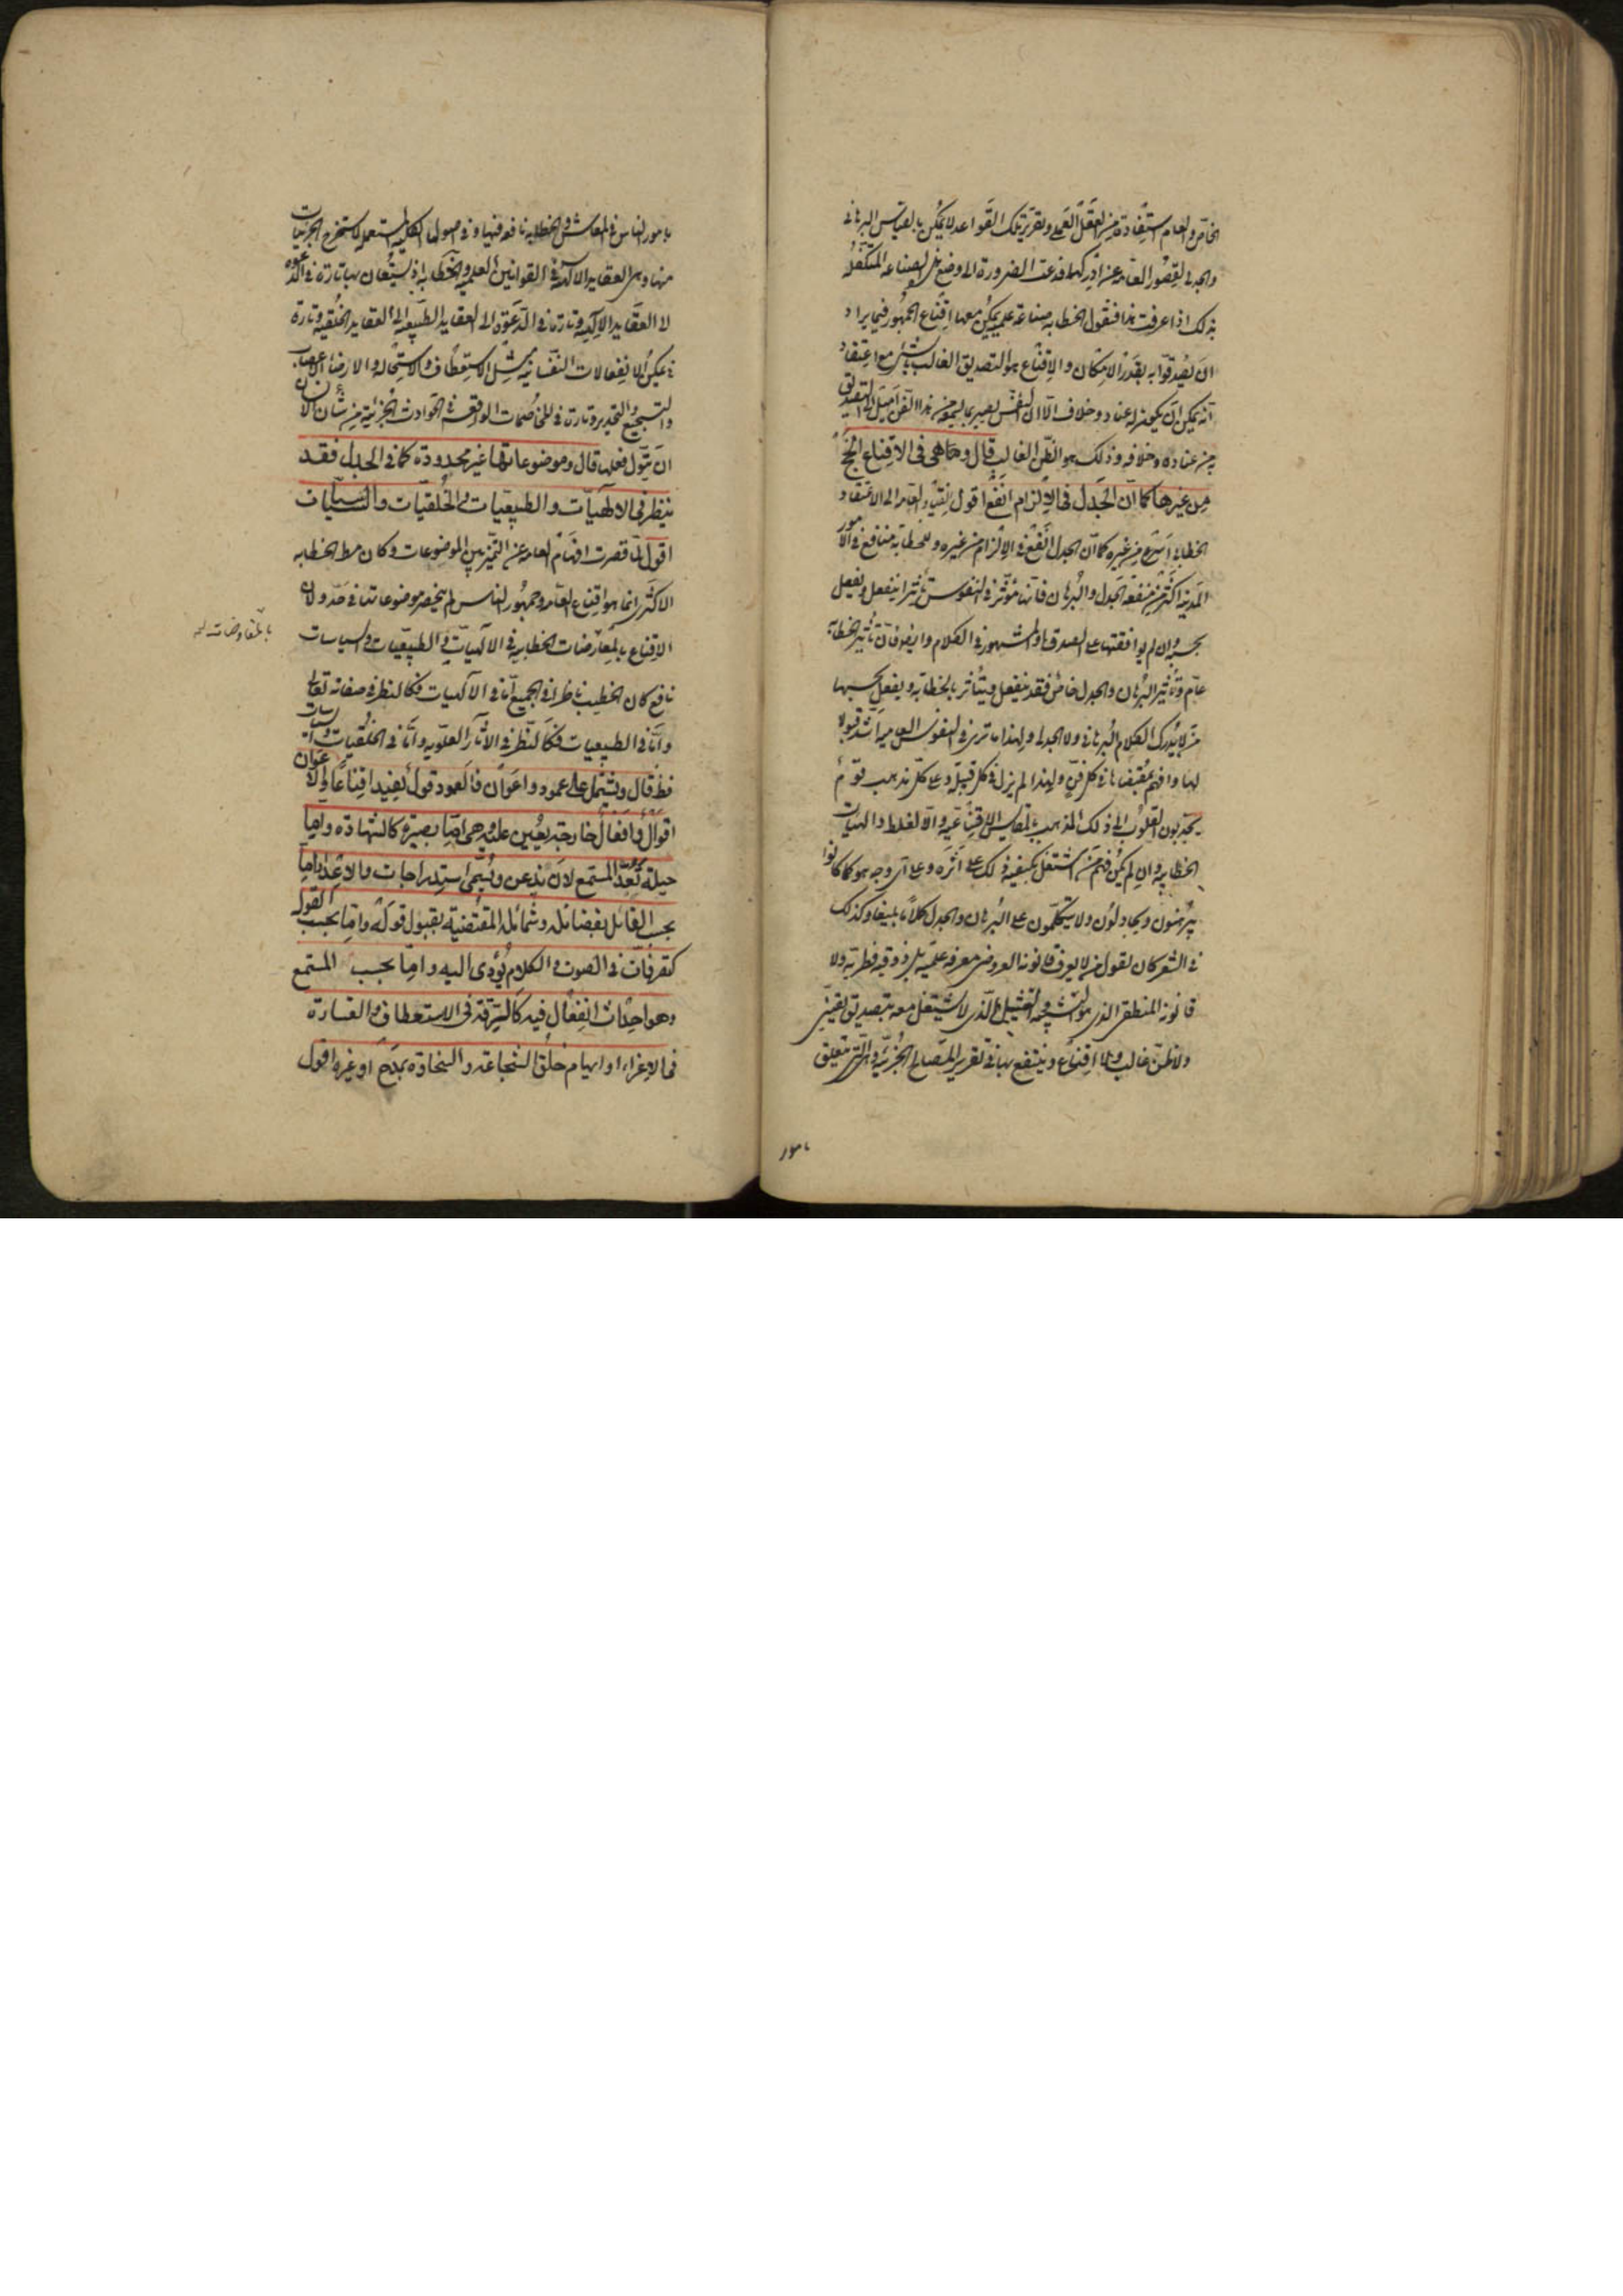 الخاص والعام مستفادة من العقل العملى وتقرير تلك القواعد لا يمكن بالقياس البرهانى
والجدلى لقصور العامة عن ادراكهما فدعت الضرورة الى وضع هذه الصناعة المتكفلة
بذلك اذا عرفت هذا فنقول الخطابة صناعة علمية يمكن معها اقناع الجمهور فيما يراد
ان يصدقوا به بقدر الامكان والاقناع هو التصديق الغالب بشىء مع اعتقاد
انه يمكن ان يكون له عناد وخلاف الا ان النفس تصير بما تسمعه من هذا الفن اميل الى التصديق
به من عناده وخلافه وذلك هو الظن الغالب قال وهى فى الاقناع انجح
من غيرها كما ان الجدل فى الالزام انفع اقول انقياد العامة الى الاعتقاد
الخطابى اسرع من غيره كما ان الجدل انفع فى الالزام من غيره وللخطابة منافع فى الامور
المدنية اكثر من منفعة الجدل والبرهان فانها مؤثرة فى النفوس تأثيرا ينفعل ويفعل
بحسبه وان لم يوافقها على الصدق والمشهور فى الكلام وايضا فان تأثير الخطابة
عام وتأثير البرهان والجدل خاص فقد ينفعل ويتأثر بالخطابة ويفعل بحسبها
من لا يدرك الكلام البرهانى ولا الجدلى ولهذا ما ترى فى النفوس العامية اشد قبولا
لها وافهم بمقتضاها فى كل فن ولهذا لم يزل فى كل قبيلة وعلى كل مذهب قوم
يجذبون القلوب الى ذلك المذهب بالمقاييس الاقناعية والالفاظ والهيات
الخطابية وان لم يكن فيهم من اشتغل بكيفية ذلك على اثره وعلى اى وجه هو كما كانوا
يبرهنون ويجادلون ولا يتكلمون على البرهان والجدل كلاما بليغا وكذلك
فى الشعر كان يقول من لا يعرف قانون العروض معرفة علمية بل بذوقية فطرية ولا
قانونه المنطقى الذى هو التشبيه والتخييل الذى لا يشتغل معه بتصديق يقينى
ولا ظن غالب ولا اقناع وينتفع بها فى تقرير المصالح الجزئية والتى تتعلق
بامور
بامور الناس فى المعاش والخطابة نافعة فيها وفى اصولها الكلية المستعملة لاستخراج الجزئيات
منها وهى العقايد الالهية والقوانين العلمية والخطابة اذ يستعان بها تارة فى الدعوة
الى العقايد الالهية وتارة فى الدعوة الى العقايد الطبيعية او العقايد الخلقية وتارة
فى تمكين الانفعالات النفسانية مثل الاستعطاف والاستمالة والارضاء والاغضاب
والتشجيع والتحذير وتارة فى المخاصمات الواقعة فى الحوادث الجزئية من شأن الانسان
ان يتولى فعلها قال وموضوعاتها غير محدودة كما فى الجدل فقد
ينظر فى الالهيات والطبيعيات والخلقيات والسياسيات
اقول لما قصرت افهام العامة عن التمييز بين الموضوعات وكان مط الخطابة
الاكثرى انما هو اقناع العامة وجمهور الناس لم تنحصر موضوعاتها فى حد ولان
الاقناع بالمعارضات الخطابية فى الالهيات والطبيعيات والسياسات
بالمفاوضات
نافع كان الخطيب ناظرا فى الجميع اما فى الالهيات فكالنظر فى صفاته تعالى
واما فى الطبيعيات فكالنظر فى الاثار العلوية واما فى الخلقيات والسياسيات
فظ قال وتشتمل على عمود واعوان فالعمود قول يفيد اقناعا والاعوان
اقوال وافعال خارجة يعين عليه وهى اما بصيرة كالشهادة واما
حيلة تعد المستمع لان يذعن وتسمى استدراجات والاعداد اما
بحسب القائل بفضائله وشمائله المقتضية بقبول قوله واما بحسب القول
كتصرفات فى الصوت والكلام يؤدى اليه واما بحسب المستمع
وهو احداث انفعال فيه كالرقة فى الاستعطاف والقساوة
فى الاغراء او ايهام خلق الشجاعة والسخاوة بمدح او غيره اقول